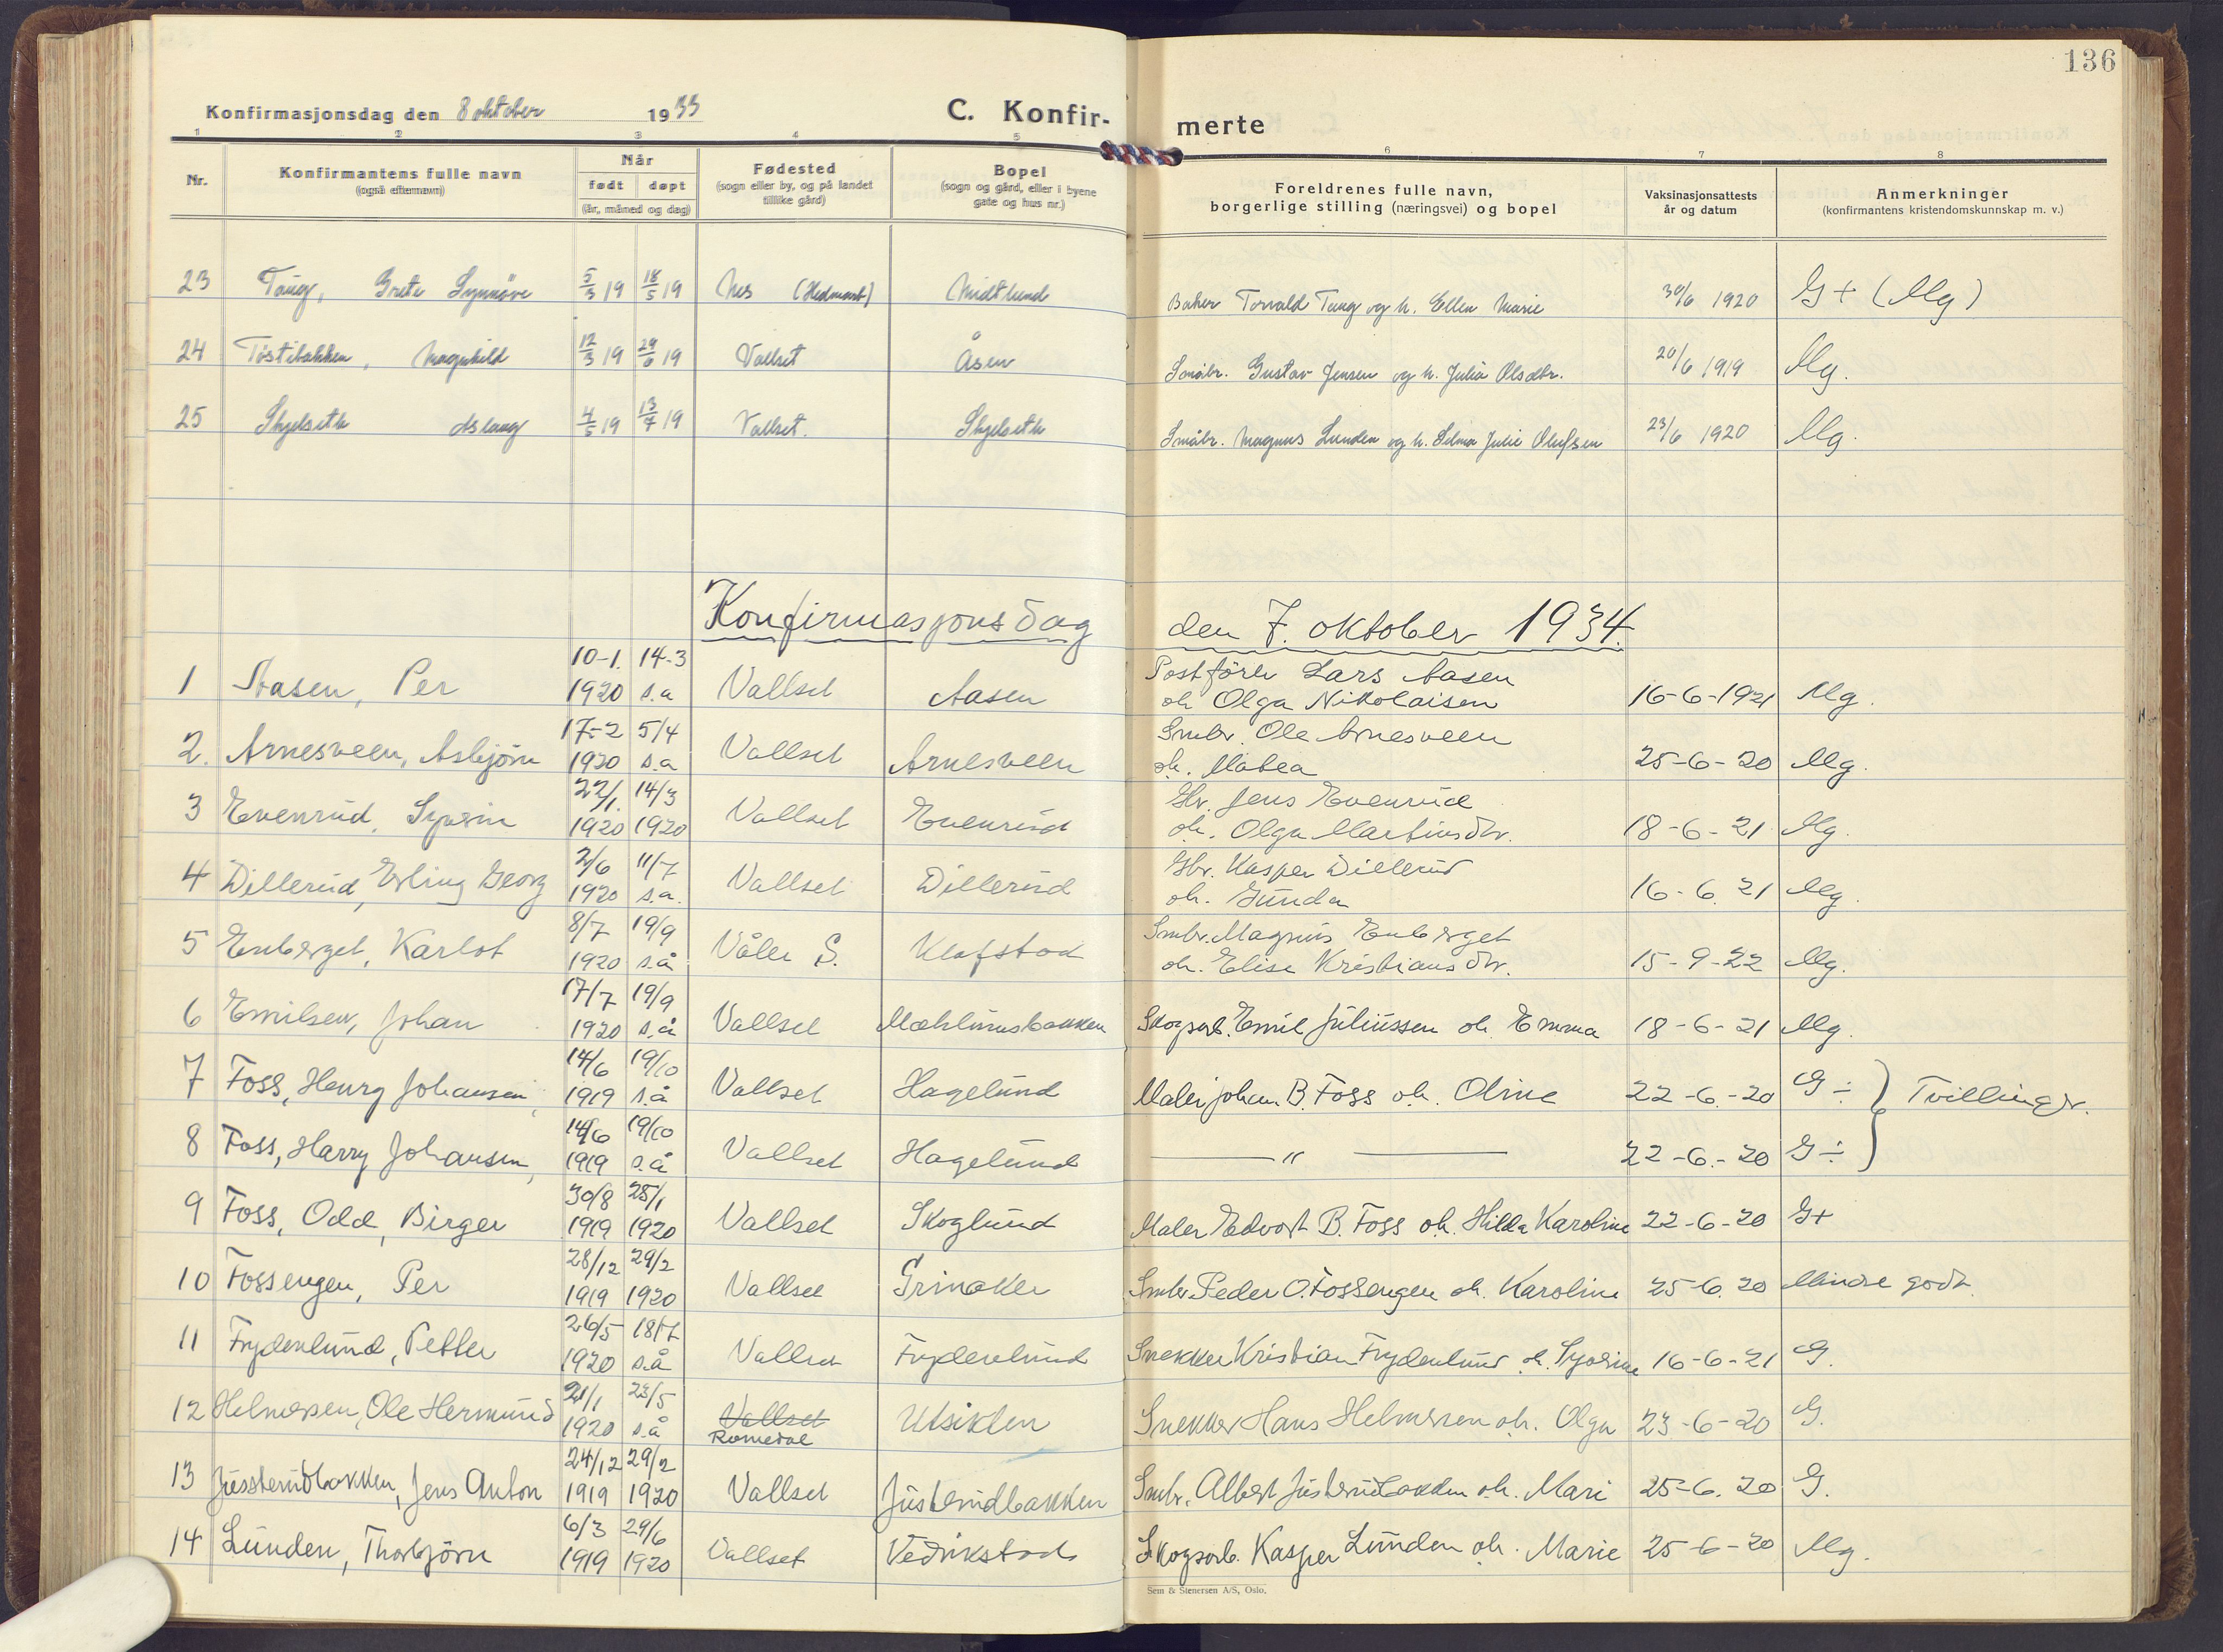 136
Konfirmasjonsdag den 8 oktober 1933
C. Konfirmerte
1 2 3 4 5 6 7 8
Nr.
Konfirmantens fulle navn
(også efternavn)
Når
født døpt
(år, måned og dag)
Fødested
(sogn eller by, og på landet
tillike gård)
Bopel
(sogn og gård, eller i byene
gate og hus nr.)
Foreldrenes fulle navn,
borgerlige stilling (næringsvei) og bopel
Vaksinasjonsattests
år og datum
Anmerkninger
(konfirmantens kristendomskunnskap m. v.)
23 Taug, Grete Synnöve 5/3 19 18/5 19 Nes (Hedmark) Midtlund Baker Torvald Taug og h. Ellen Marie 30/6 1920 G+ (Mg)
24 Töstibakken, Magnhild 12/3 19 29/6 19 Vallset Åsen Småbr. Gustav Jensen og h. Julia Olsdtr. 20/6 1919 Mg.
25 Skjelseth Aslaug 4/5 19 13/7 19 Vallset. Skjelseth Småbr. Magnus Lunden og h. Selma Julie Olufsen 23/6 1920 Mg.
Konfirmasjonsdag den 7. oktober 1934.
1 Aasen, Per 10-1. 1920 14-3 s.a Vallset Aasen Postförer Lars Aasen
oh Olga Nikolaisen 16-6-1921 Mg.
2. Arnesveen, Asbjörn 17-2 1920 5/4 s.a Vallset Arnesveen Smbr. Ole Arnesveen
oh. Mabea 25-6-20 Mg.
3 Evenrud, Syverin 22/1. 1920 14/3 1920 Vallset Evenrud Gbr. Jens Evenrud
oh. Olga Martinsdtr. 18-6-21 Mg.
4 Dillerud, Erling Georg 2/6 1920 11/7 s.a. Vallset Dillerud Gbr. Kasper Dillerud
oh. Gunda 16-6.21 Mg
5 Enberget, Karlot 8/7 1920 19/9 s.å Våler S. Klafstad Smbr. Magnus Enberget
oh. Elise Kristiansdtr. 15-9-22 Mg.
6 Emilsen, Johan 17/7 1920 19/9 s.å Vallset Mæhlumsbakken Skogsarb. Emil Juliussen oh Emma 18-6-21 Mg.
7 Foss, Henry Johansen, 14/6 1919 19/10 s.å Vallset Hagelund Maler Johan B. Foss oh. Oline 22-6-20 G ÷ } Tvillinger.
8 Foss, Harry Johansen, 14/6 1919 19/10 s.å Vallset Hagelund — " — 22-6.-20 G ÷
9 Foss, Odd, Birger 30/8 1919 25/1 1920 Vallset Skoglund Maler Edvart B. Foss oh. Hilda Karoline 22-6-20 G+
10 Fossengen, Per 28/12 1919 29/2 1920 Vallset Grinaker Smbr. Peder O. Fossengen oh. Karoline 25-6.20 Mindre godt.
11 Frydenlund, Petter 26/5 1920 18/7 s.å Vallset Frydenlund Snekker Kristian Frydenlund oh. Syverine 16-6-21 G.
12 Helmersen, Ole Hermund 21/1 1920 23/5 s.å Vallset
Romedal Utsikten Snekker Hans Helmersen oh. Olga 23-6-20 G.
13 Jussterudbakken, Jens Anton 24/12 1919 29/2 1920 Vallset Justerudbakken Smbr. Albert Justerudbakken oh. Mari 25-6.20 G.
14 Lunden, Thorbjörn 6/3 1919 29/6 1920 Vallset Vedrikstad Skogsarb. Kasper Lunden oh. Marie 25-6-20 Mg.
Sem & Stenersen A/S, Oslo.